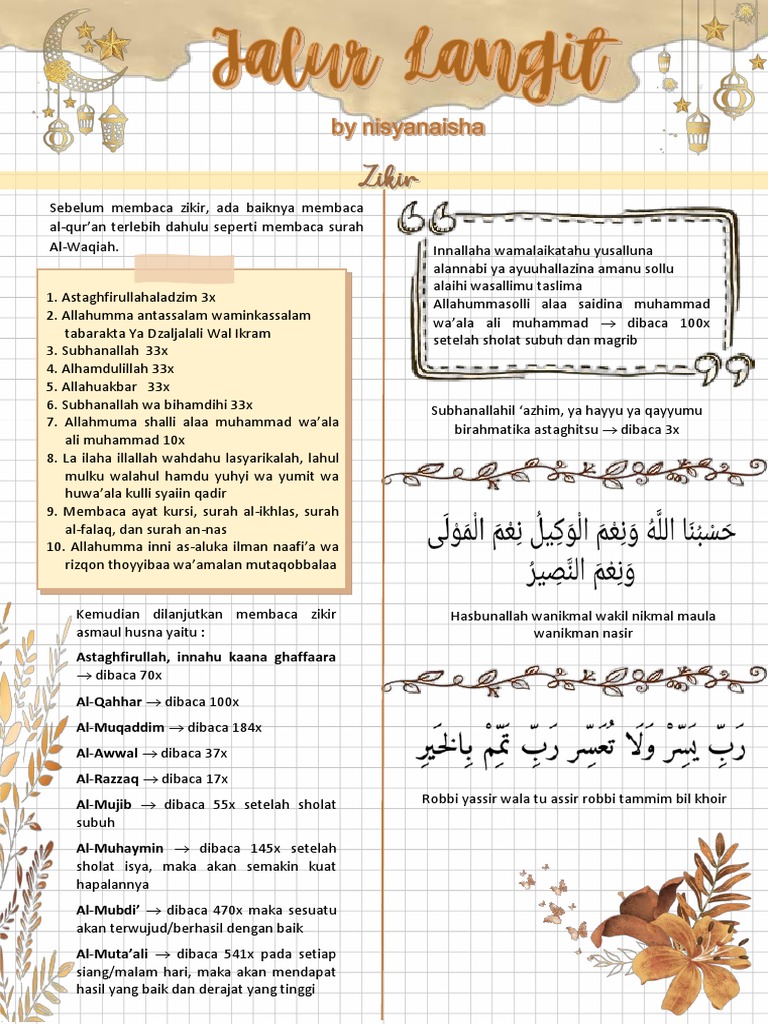 Jalur Langit
by nisyanaisha
Zikir
Sebelum membaca zikir, ada baiknya membaca
al-qur’an terlebih dahulu seperti membaca surah
Al-Waqiah.
1. Astaghfirullahaladzim 3x
2. Allahumma antassalam waminkassalam
tabarakta Ya Dzaljalali Wal Ikram
3. Subhanallah 33x
4. Alhamdulillah 33x
5. Allahuakbar 33x
6. Subhanallah wa bihamdihi 33x
7. Allahmuma shalli alaa muhammad wa’ala
ali muhammad 10x
8. La ilaha illallah wahdahu lasyarikalah, lahul
mulku walahul hamdu yuhyi wa yumit wa
huwa’ala kulli syaiin qadir
9. Membaca ayat kursi, surah al-ikhlas, surah
al-falaq, dan surah an-nas
10. Allahumma inni as-aluka ilman naafi’a wa
rizqon thoyyibaa wa’amalan mutaqobbalaa
Kemudian dilanjutkan membaca zikir
asmaul husna yaitu :
Astaghfirullah, innahu kaana ghaffaara
→ dibaca 70x
Al-Qahhar → dibaca 100x
Al-Muqaddim → dibaca 184x
Al-Awwal → dibaca 37x
Al-Razzaq → dibaca 17x
Al-Mujib → dibaca 55x setelah sholat
subuh
Al-Muhaymin → dibaca 145x setelah
sholat isya, maka akan semakin kuat
hapalannya
Al-Mubdi’ → dibaca 470x maka sesuatu
akan terwujud/berhasil dengan baik
Al-Muta’ali → dibaca 541x pada setiap
siang/malam hari, maka akan mendapat
hasil yang baik dan derajat yang tinggi
Innallaha wamalaikatahu yusalluna
alannabi ya ayuuhallazina amanu sollu
alaihi wasallimu taslima
Allahummasolli alaa saidina muhammad
wa’ala ali muhammad → dibaca 100x
setelah sholat subuh dan magrib
Subhanallahil ‘azhim, ya hayyu ya qayyumu
birahmatika astaghitsu → dibaca 3x
حَسْبُنَا اللَّهُ وَنِعْمَ الْوَكِيلُ نِعْمَ الْمَوْلَى
وَنِعْمَ النَّصِيرُ
Hasbunallah wanikmal wakil nikmal maula
wanikman nasir
رَبِّ يَسِّرْ وَلَا تُعَسِّر رَبِّ تَمِّمْ بِالخَيرِ
Robbi yassir wala tu assir robbi tammim bil khoir